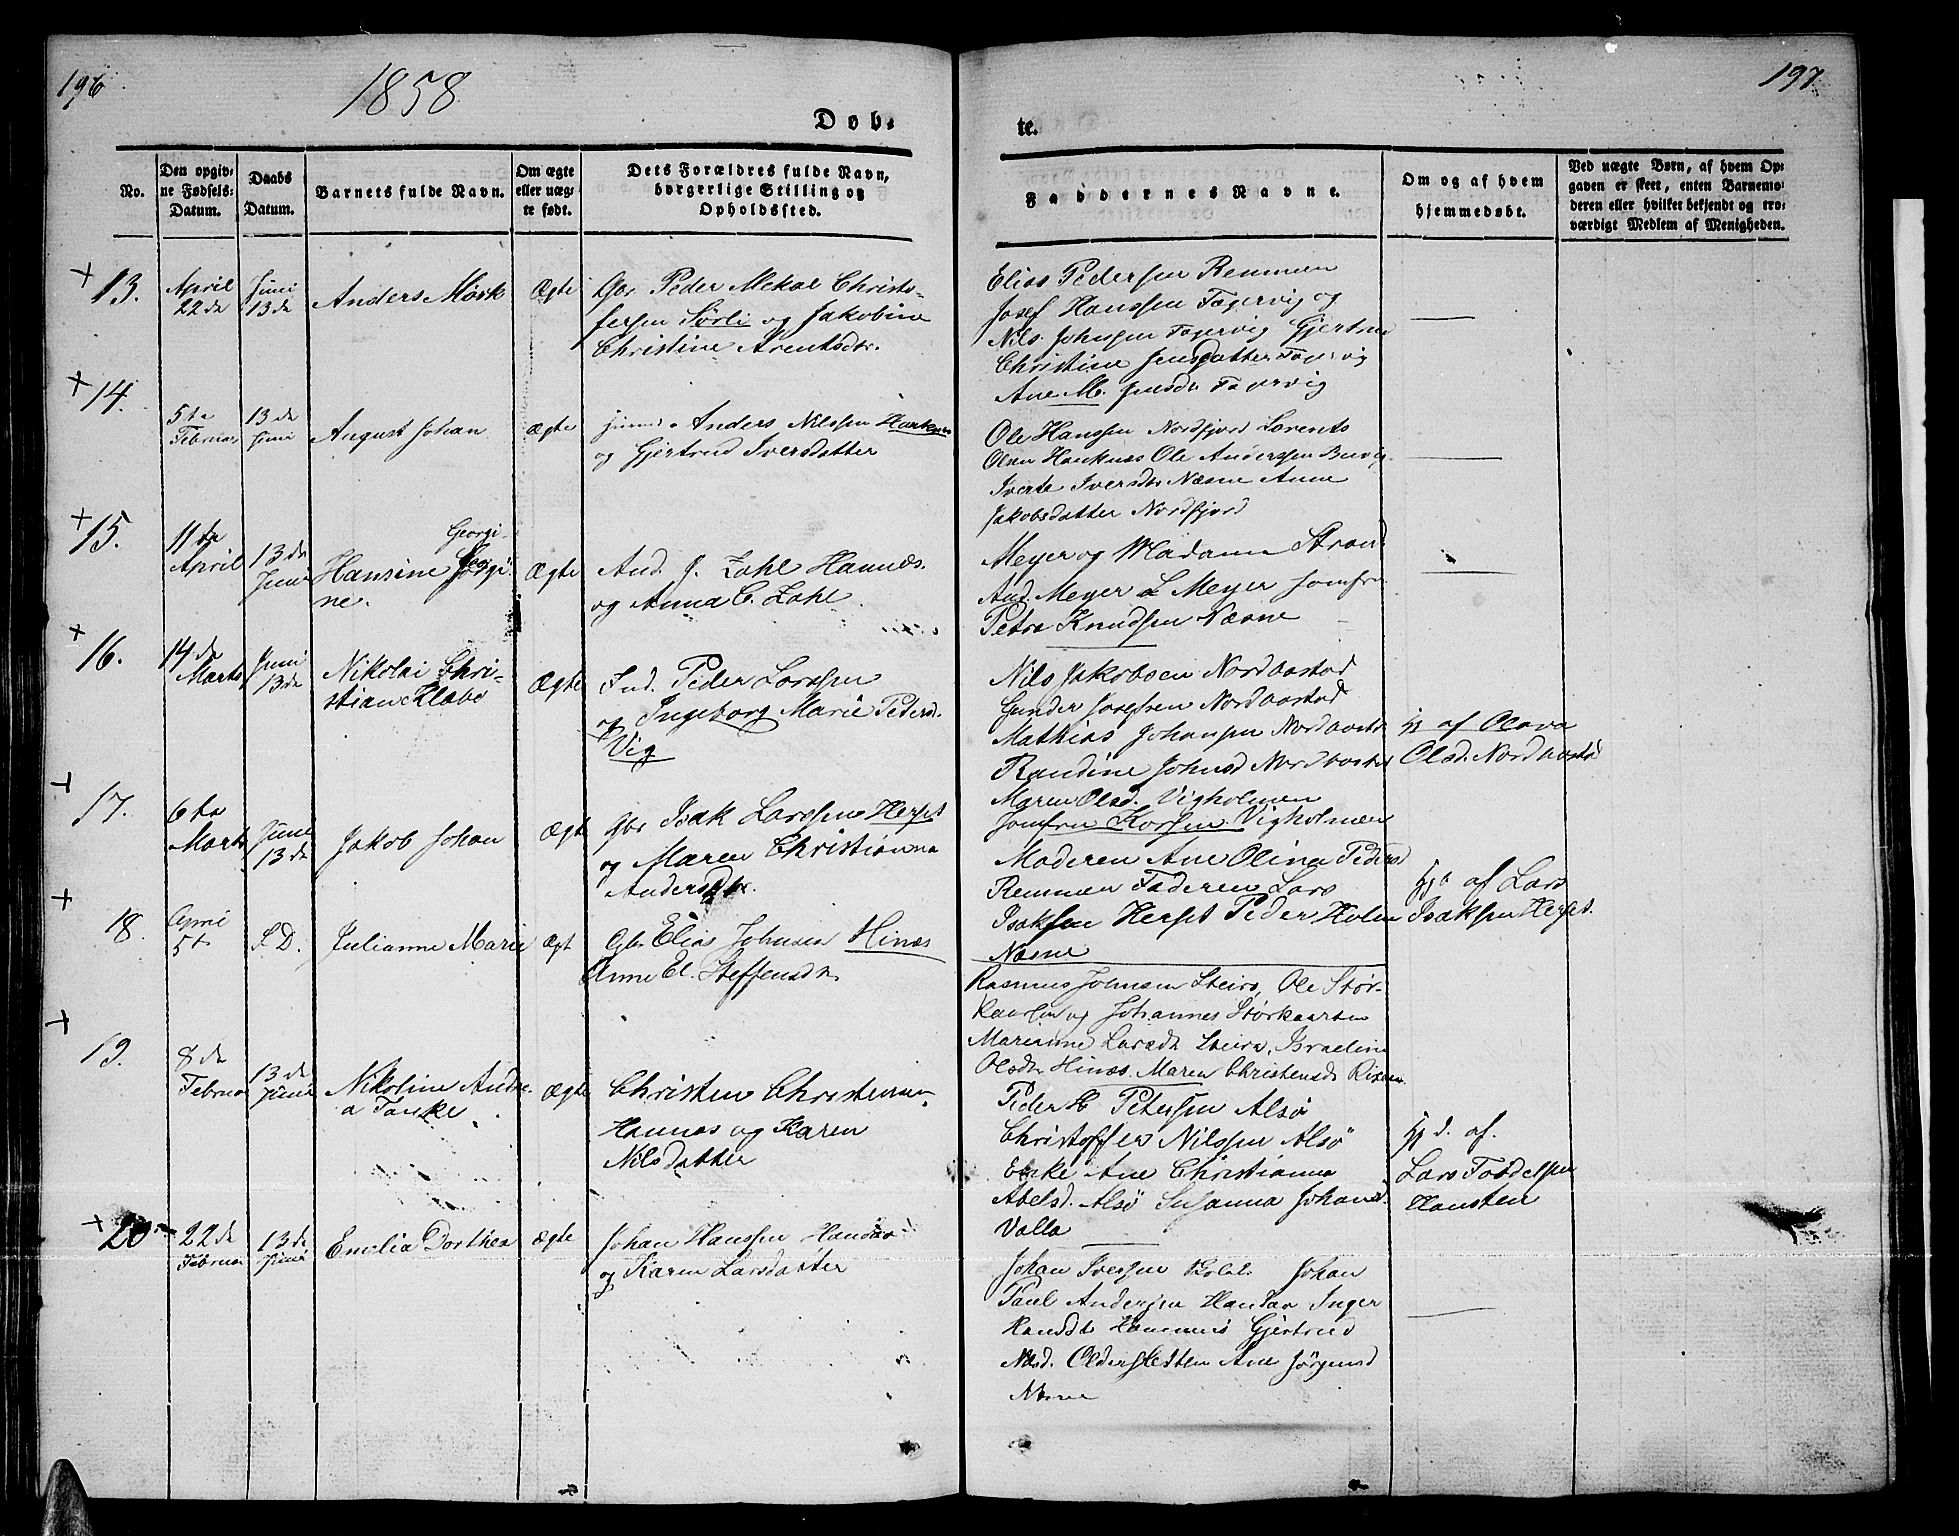 196
1858
Døb-
te.
197.
No.
Den opgiv-
ne Fødsels-
Datum.
Daabs
Datum.
Barnets fulde Navn.
Om ægte
eller uæg-
te født.
Dets Forældres fulde Navn,
borgerlige Stilling og
Opholdssted.
Faddernes Navne.
Om og af hvem
hjemmedøbt.
Ved uægte Børn, af hvem Op-
gaven er skeet, enten Barnemo-
deren eller hvilket bekjendt og tro-
værdigt Medlem af Menigheden.
+ 13.
April
22de
Juni
13de
Anders Mørk
Ægte
Gbr Peder Mekal Christo-
fersen Sørli og Jakobine
Christine Arentsdtr.
Elias Pedersen Remmen
Josef Hanssen Fagervig og
Nils Johnsen Fagervig Gjertrue
Christine Jensdatter Fagervig
Ane M. Jensdr Fagervig
+ 14.
5te
Februar
13de
Juni
August Johan
Ægte
Anders Nilssen
og Gjertrud Iversdatter
Ole Hanssen Nordfjord Lorents
Olsen Ole Anderssen
Iversdtr Næsne Anne
Jakobsdatter Nordfjord
+ 15.
11te
April
13de
Juni
Georgi-
Hansine
ne.
Ægte
And. J. Zahl Hannæs.
og Anna C. Zahl.
Meyer og Madame Strand
And. Meyer L Meyer Jomfru
Petra Knudsen Næsne
+ 16.
14de
Marts
Juni
13de
Nikolai Chri-
stian Klæbo
Ægte
Ind. Peder Larssen
og Ingeborg Marie Pedersd.
Vig
Nils Jakobsen Nordaastad
Gunder Josefsen Nordaastad
Mathias Johansen Nordaastd
Randine Johnsd Nordaastad
Maren Olsd. Vigholmen
Jomfru Korsen Vigholmen
Hj af Olava
Olsd. Nordaastd
+ 17.
6te
Marts
Juni
13de
Jakob Johan
Ægte
Gbr Isak Larssen
og Maren Christianna
Andersdtr.
Moderen Ane Olina Pedersd
Remmen Faderen Lars
Isaksen Peder Holm
Næsne
Hjd af Lars
Isaksen
+ 18.
April
5t
S.D.
Julianne Marie
Ægt
Gbr Elias Johnsen Hinæs
Anne El. Steffensdr
Rasmus Johnsen Steiro, Ole Stør-
og Johannes
Marianne Larsdt Steiro, Israeline
Olsdtr Hinæs. Maren Christensd
+ 19.
8de
Februar
13de
Juni
Nikoline Andre-
a Tanke
Ægte
Christen Christensen
Hannæs og Karen
Nilsdatter
Peder H Petersen Alsø
Christoffer Nilssen Alsø
Enke Ane Christianna
Abelsd. Alsø Susanna Johansd
Valla
Hjd. af.
Lars
+ 20
22de
Februar
13de
Juni
Emelia Dorthea
Ægte
Johan Hanssen
og Karen Larsdatter
Johan Iversen Johan
Paul Andersen Inger
Gjertrud
Nilsd. Ane Jørgensd
Næsne